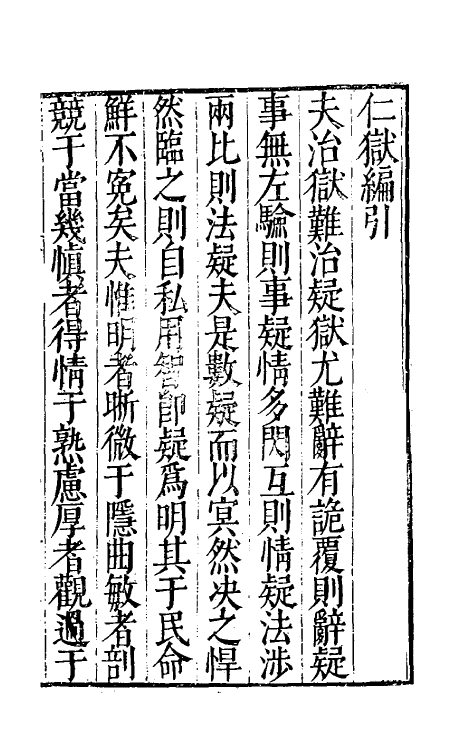 仁獄編引
夫治獄難治疑獄尤難辭有詭覆則辭疑
事無左驗則事疑情多閃互則情疑法涉
兩比則法疑夫是數疑而以㝠然决之悍
然臨之則自私用智卽疑爲明其于民命
鮮不寃矣夫惟明者晰微于隱曲敏者剖
競于當幾愼者得情于熟慮厚者觀過于